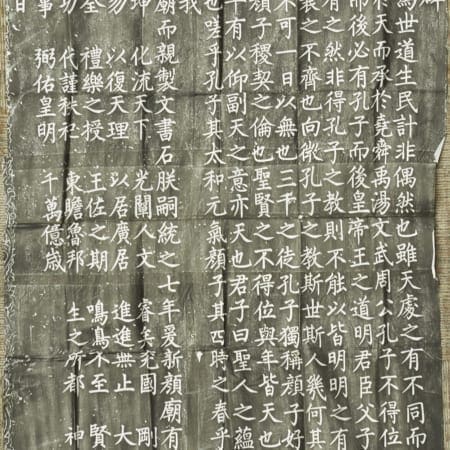 爲世道生民計非偶然也雖天處之有不同而
於天而承於堯舜禹湯文武周公孔子不得位
而後必有孔子而後皇帝王之道明君臣父子
有之然非得孔子之教則不能以皆明明之有
衰之不齊也向微孔子之教斯世斯人幾何其
不可一日以無也三千之徒孔子獨稱顏子好
顏子稷契之倫也聖賢之不得位與年皆天也
有以仰副天之意亦天也君子曰聖人之蘊
也嗟乎孔子其太和元氣顏子其四時之春乎
我
廟而親製文書石朕嗣統之七年爰新顏廟有
坤 化流天下 光闡人文 睿矣兗國 剛
勿 以復天理 以居廣居 進進無止 大
全 禮樂之授 王佐之期 鳴鳥不至 賢
代謹秩祀 東瞻魯邦 生之所都 神
事 弼佑皇明 千萬億歲
日